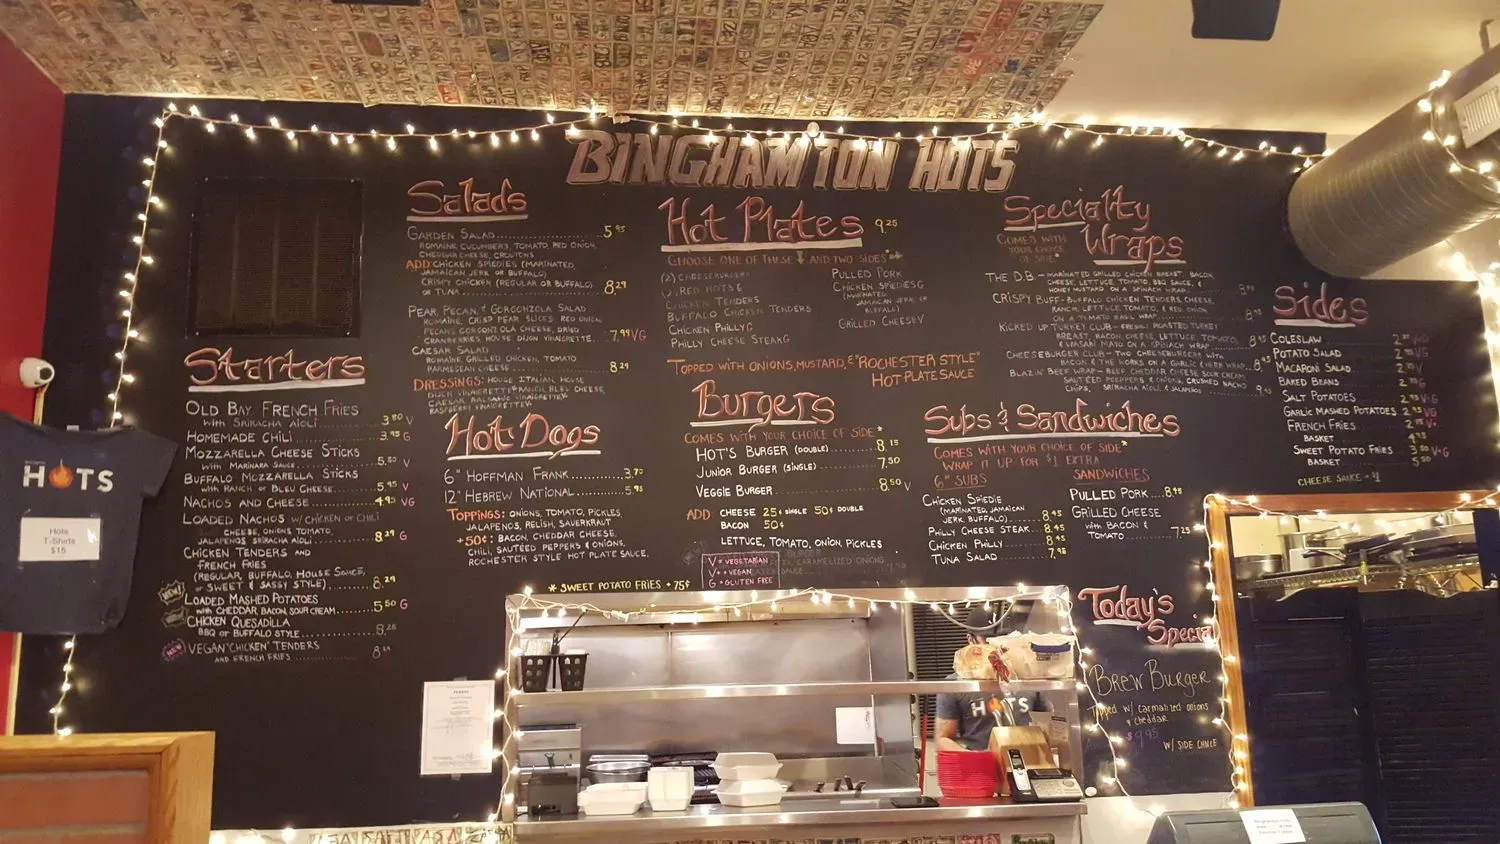 BINGHAMTON HOTS
Starters
OLD BAY FRENCH FRIES
WITH SRIRACHA AIOLI 3.80 V
HOMEMADE CHILI 3.95 G
MOZZARELLA CHEESE STICKS
WITH MARINARA SAUCE 5.80 V
BUFFALO MOZZARELLA STICKS
WITH RANCH OR BLEU CHEESE 5.95 V
NACHOS AND CHEESE 4.95 VG
LOADED NACHOS W/ CHICKEN OR CHILI
CHEESE, ONIONS, TOMATO,
JALAPENOS, SRIRACHA AIOLI 8.29 G
CHICKEN TENDERS AND
FRENCH FRIES
(REGULAR, BUFFALO, HOUSE SAUCE,
OR SWEET & SASSY STYLE) 8.29
NEW!
LOADED MASHED POTATOES
WITH CHEDDAR, BACON, SOUR CREAM 5.50 G
CHICKEN QUESADILLA
BBQ OR BUFFALO STYLE 8.25
NEW
VEGAN "CHICKEN" TENDERS
AND FRENCH FRIES
Salads
GARDEN SALAD 5.95
ROMAINE, CUCUMBERS, TOMATO, RED ONION,
CHEDDAR CHEESE, CROUTONS
ADD: CHICKEN SPIEDIES (MARINATED,
JAMAICAN JERK OR BUFFALO)
CRISPY CHICKEN (REGULAR OR BUFFALO)
OR TUNA 8.29
PEAR, PECAN, & GORGONZOLA SALAD
ROMAINE, CRISP PEAR SLICES, RED ONION,
PECANS, GORGONZOLA CHEESE, DRIED
CRANBERRIES, HOUSE DIJON VINAIGRETTE 7.99 VG
CAESAR SALAD
ROMAINE, GRILLED CHICKEN, TOMATO
PARMESEAN CHEESE 8.29
DRESSINGS: HOUSE ITALIAN, HOUSE
DIJON VINAIGRETTE, RANCH, BLEU CHEESE,
CAESAR, BALSAMIC VINAIGRETTE
RASPBERRY VINAIGRETTE
Hot Dogs
6" HOFFMAN FRANK 3.70
12" HEBREW NATIONAL 5.95
TOPPINGS: ONIONS, TOMATO, PICKLES,
JALAPENOS, RELISH, SAUERKRAUT
+50¢: BACON, CHEDDAR CHEESE,
CHILI, SAUTÉED PEPPERS & ONIONS,
ROCHESTER STYLE HOT PLATE SAUCE.
Hot Plates 9.25
CHOOSE ONE OF THESE AND TWO SIDES
(2) CHEESEBURGERS
(2) RED HOTS G
CHICKEN TENDERS
BUFFALO CHICKEN TENDERS
CHICKEN PHILLY G
PHILLY CHEESE STEAK G
PULLED PORK
CHICKEN SPIEDIES G
(MARINATED,
JAMAICAN JERK OR
BUFFALO)
GRILLED CHEESE V
TOPPED WITH ONIONS, MUSTARD, & "ROCHESTER STYLE"
HOT PLATE SAUCE
Burgers
COMES WITH YOUR CHOICE OF SIDE*
HOT'S BURGER (DOUBLE) 8.15
JUNIOR BURGER (SINGLE) 7.50
VEGGIE BURGER 8.50 V
ADD CHEESE 25¢ SINGLE 50¢ DOUBLE
BACON 50¢
LETTUCE, TOMATO, ONION, PICKLES
V = VEGETARIAN
V+ = VEGAN
G = GLUTEN FREE
* SWEET POTATO FRIES + 75¢
Specialty
Wraps
COMES WITH
YOUR CHOICE
OF SIDE*
THE D.B. - MARINATED GRILLED CHICKEN BREAST, BACON,
CHEESE, LETTUCE, TOMATO, BBQ SAUCE, &
HONEY MUSTARD ON A SPINACH WRAP
CRISPY BUFF - BUFFALO CHICKEN TENDERS, CHEESE,
RANCH, LETTUCE, TOMATO, & RED ONION
ON A TOMATO BASIL WRAP
KICKED UP TURKEY CLUB - FRESH ROASTED TURKEY
BREAST, BACON, CHEESE, LETTUCE, TOMATO,
& WASABI MAYO ON A SPINACH WRAP 8.95
CHEESEBURGER CLUB - TWO CHEESEBURGERS WITH
BACON & THE WORKS ON A GARLIC & HERB WRAP 8.95
BLAZIN' BEEF WRAP - BEEF, CHEDDAR CHEESE, SOUR CREAM,
SAUTÉED PEPPERS & ONIONS, CRUSHED NACHO
CHIPS, SRIRACHA AIOLI, & JALAPENOS 9.45
Subs & Sandwiches
COMES WITH YOUR CHOICE OF SIDE*
WRAP IT UP FOR $1 EXTRA
6" SUBS
CHICKEN SPIEDIE
(MARINATED, JAMAICAN
JERK, BUFFALO) 8.45
PHILLY CHEESE STEAK 8.45
CHICKEN PHILLY 8.45
TUNA SALAD 7.95
SANDWICHES
PULLED PORK 8.95
GRILLED CHEESE
WITH BACON &
TOMATO 7.25
Sides
COLESLAW
POTATO SALAD
MACARONI SALAD
BAKED BEANS
SALT POTATOES
GARLIC MASHED POTATOES
FRENCH FRIES
BASKET
SWEET POTATO FRIES
BASKET
CHEESE SAUCE + $1
Today's
Special
BREW BURGER
Topped w/ carmalized onions
& cheddar
$9.95
W/ SIDE CHOICE
HOTS
Hots
T-Shirts
$15
HOTS